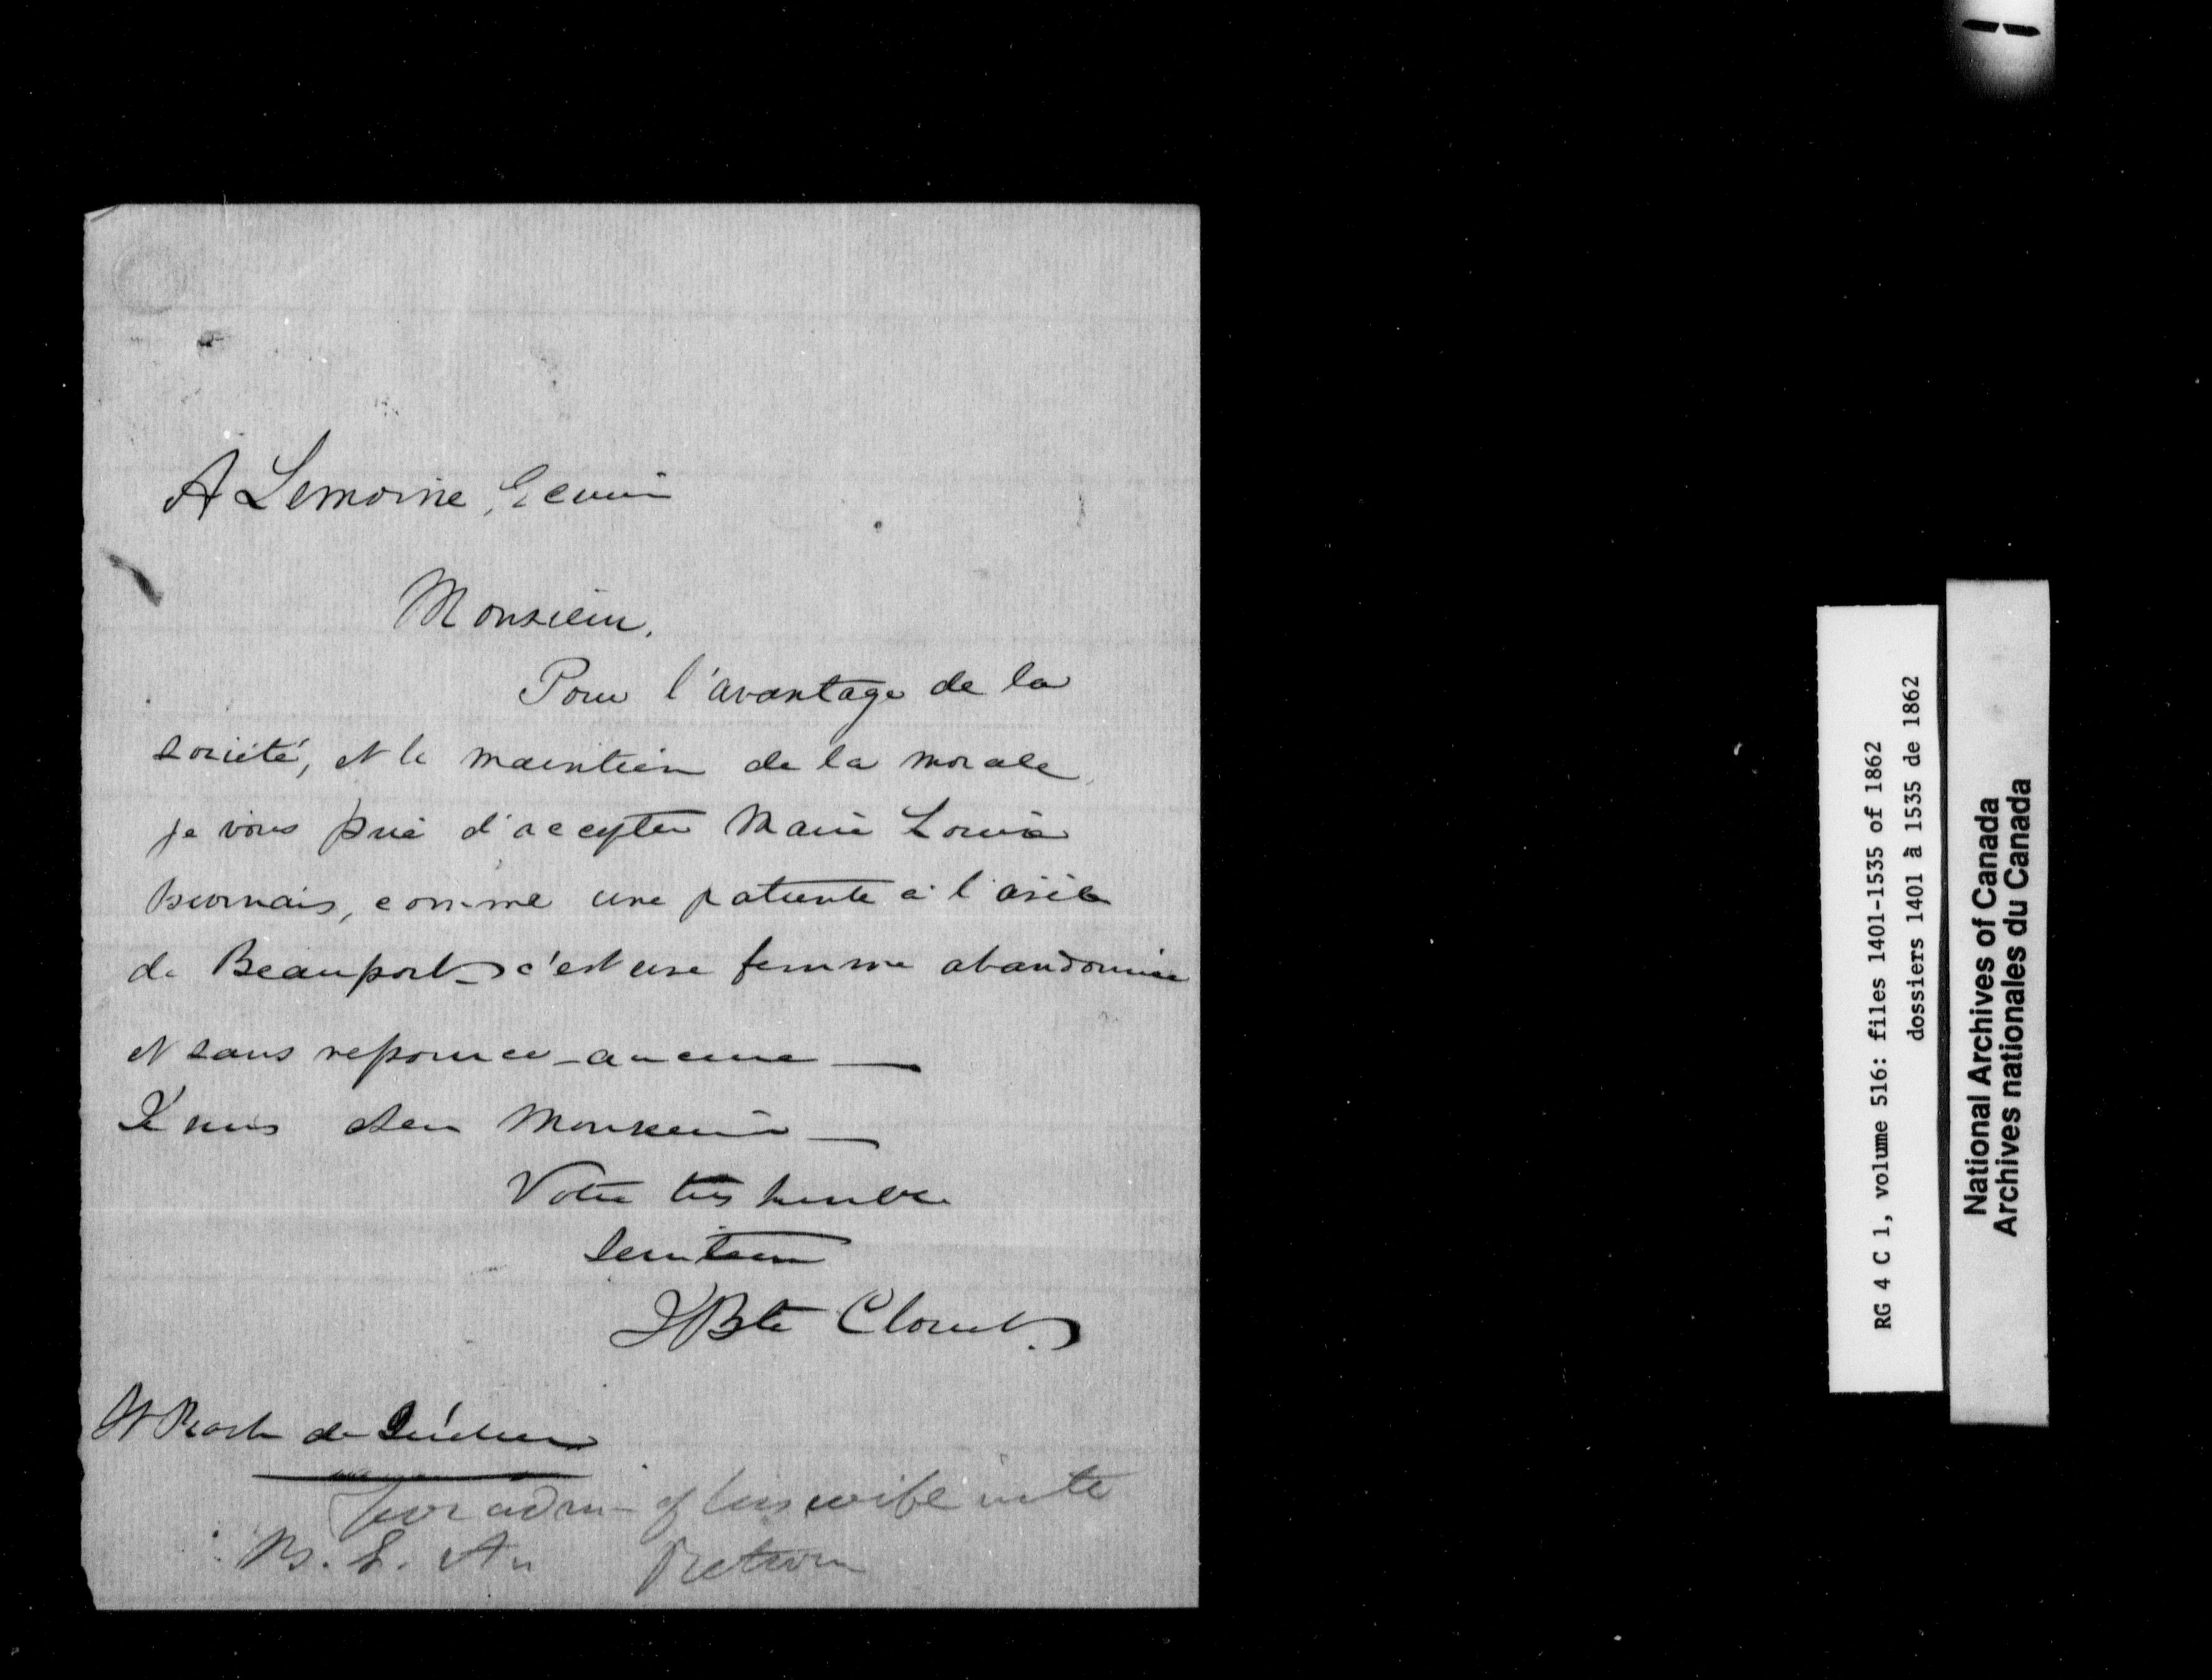 A Lemoine, Ecuier
Monsieur,
Pour l'avantage de la
société, et le maintien de la morale,
je vous prie d'accepter Marie Louise
comme une patiente à l'asile
de Beauport c'est une femme abandonnée
et sans aucune —
Je suis Monsieur —
Votre très humble
serviteur
JBte Clouet
St Roch de Québec
for adm of his wife into
B. L. As Return
RG 4 C 1, volume 516: files 1401-1535 of 1862
dossiers 1401 à 1535 de 1862
National Archives of Canada
Archives nationales du Canada